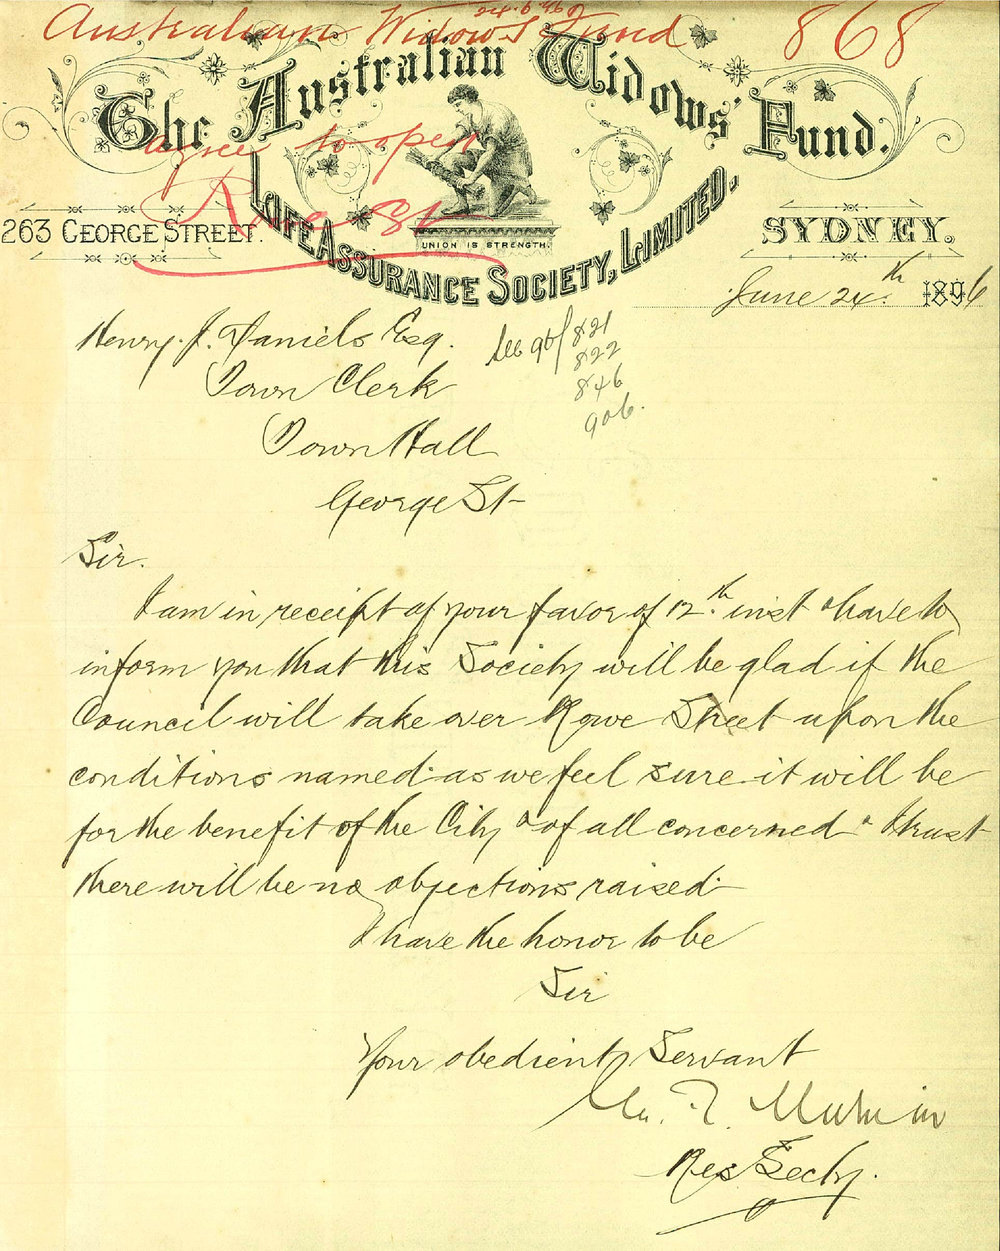 24.6.96
Australian Widows Fund 868
The Australian Widows' Fund.
agree to open
Rowe St
LIFE ASSURANCE SOCIETY, LIMITED.
UNION IS STRENGTH.
263 GEORGE STREET. SYDNEY.
June 24th. 1896
Henry. J. Daniels Esq.
See 96/821
822
846
906.
Town Clerk
Town Hall
George St
Sir.
I am in receipt of your favor of 12th inst & have to
inform you that this Society will be glad if the
Council will take over Rowe Street upon the
conditions named as we feel sure it will be
for the benefit of the City & of all concerned & trust
there will be no objections raised
I have the honor to be
Sir
Your obedient Servant
Res Secty.